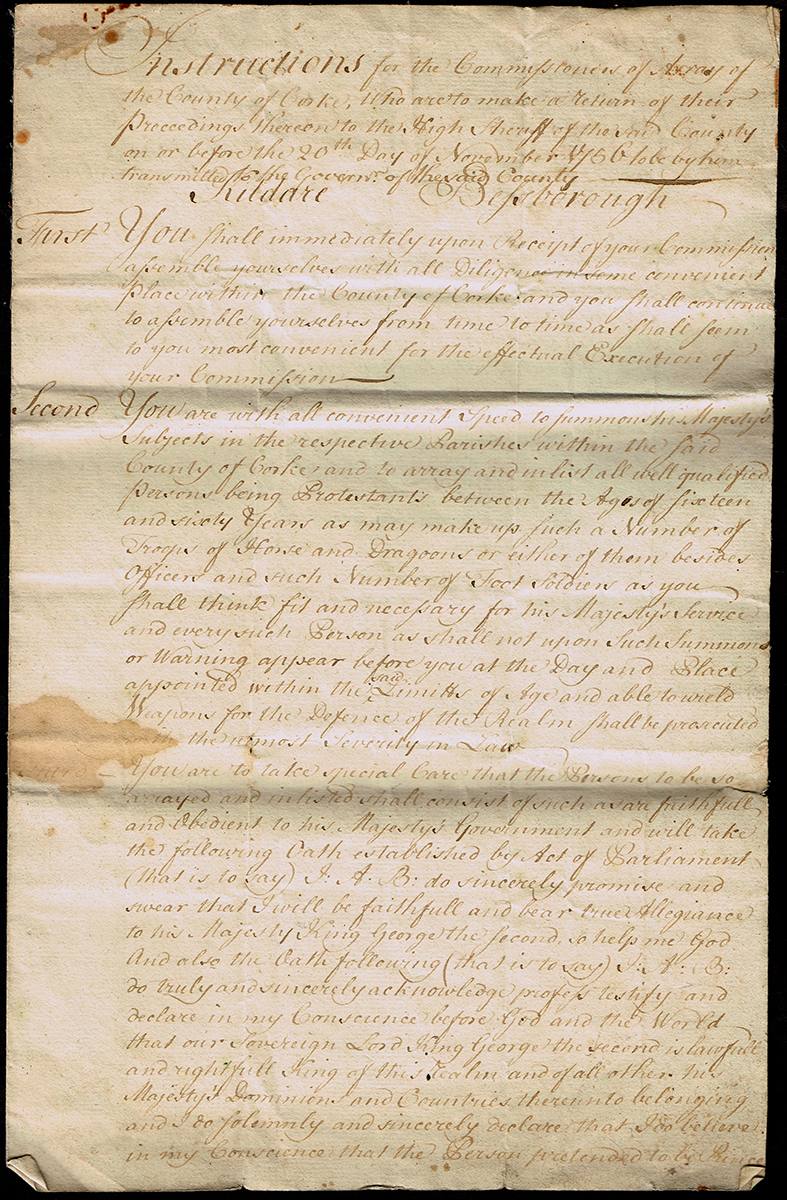 Instructions for the Commissioners of Array of
the County of Corke, Who are to make a return of their
Proceedings thereon to the High Sheriff of the said County
on or before the 20th Day of November 1756 to be by him
transmitted to the Governr. of the said County
Kildare Bessborough
First You shall immediately upon Receipt of your Commission
assemble yourselves with all Diligence in some convenient
Place within the County of Corke and you shall continue
to assemble yourselves from time to time as shall seem
to you most convenient for the effectual Execution of
your Commission
Second You are with all convenient Speed to summons his Majesty's
Subjects in the respective Parishes within the said
County of Corke and to array and inlist all well qualified
Persons being Protestants between the Ages of sixteen
and sixty Years as may make up such a Number of
Troops of Horse and Dragoons or either of them besides
Officers and such Number of Foot Soldiers as you
shall think fit and necessary for his Majesty's Service
and every such Person as shall not upon Such Summons
or Warning appear before you at the Day and Place
appointed within the said Limitts of Age and able to wield
Weapons for the Defence of the Realm shall be prosecuted
the utmost Severity in Law
Third You are to take special Care that the Persons to be so
arrayed and inlisted shall consist of such as are faithfull
and Obedient to his Majesty's Government and will take
the following Oath established by Act of Parliament
(that is to say) I: A: B: do sincerely promise and
swear that I will be faithfull and bear true Allegiance
to his Majesty King George the Second, so help me God
And also the Oath following (that is to say) I: A: B:
do truly and sincerely acknowledge profess testify and
declare in my Conscience before God and the World
that our Sovereign Lord King George the second is lawfull
and rightfull King of this Realm and of all other his
Majesty's Dominions and Countries thereunto belonging
and I do solemnly and sincerely declare that I do believe
in my Conscience that the Person pretended to be Prince